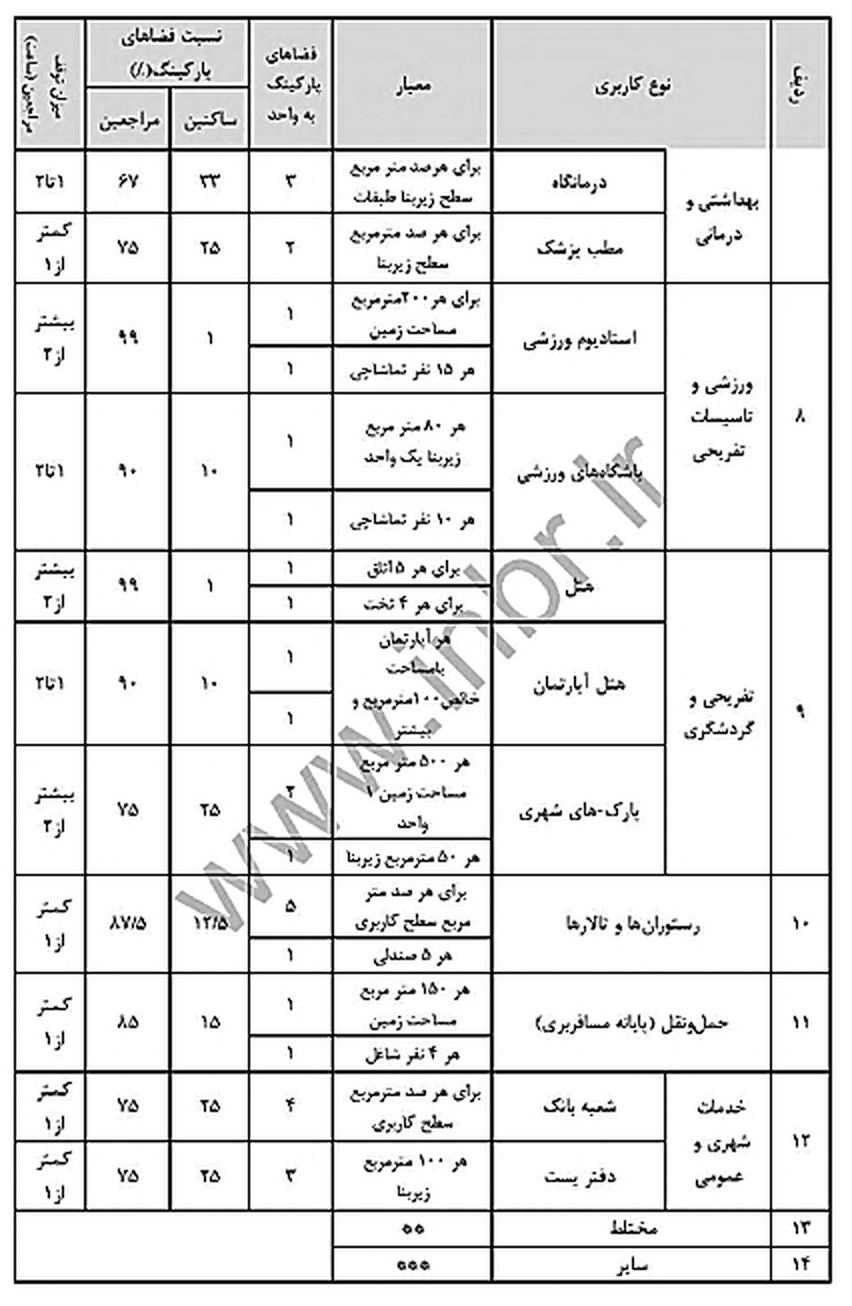 ردیف
نوع کاربری
معیار
فضاهای
پارکینگ
به واحد
نسبت فضاهای
پارکینگ(٪)
ساکنین
مراجعین
میزان توقف
مراجعین (ساعت)
بهداشتی و
درمانی
درمانگاه
برای هرصد متر مربع
سطح زیربنا طبقات
۳
۳۳
۶۷
۱تا۲
مطب پزشک
برای هر صد مترمربع
سطح زیربنا
۲
۲۵
۷۵
کمتر
از۱
۸
ورزشی و
تاسیسات
تفریحی
استادیوم ورزشی
برای هر۲۰۰مترمربع
مساحت زمین
۱
هر ۱۵ نفر تماشاچی
۱
۱
۹۹
بیشتر
از۲
باشگاه‌های ورزشی
هر ۸۰ متر مربع
زیربنا یک واحد
۱
هر ۱۰ نفر تماشاچی
۱
۱۰
۹۰
۱تا۲
۹
تفریحی و
گردشگری
هتل
برای هر ۵اتاق
۱
برای هر ۴ تخت
۱
۱
۹۹
بیشتر
از۲
هتل آپارتمان
هر آپارتمان
بامساحت
خالص۱۰۰مترمربع و
بیشتر
۱
۱
۱۰
۹۰
۱تا۲
پارک-های شهری
هر ۵۰۰ متر مربع
مساحت زمین ۱
واحد
۲
هر ۵۰ مترمربع زیربنا
۱
۲۵
۷۵
بیشتر
از۲
۱۰
رستوران‌ها و تالارها
برای هر صد متر
مربع سطح کاربری
۵
هر ۵ صندلی
۱
۱۲/۵
۸۷/۵
کمتر
از۱
۱۱
حمل‌ونقل (پایانه مسافربری)
هر ۱۵۰ متر مربع
مساحت زمین
۱
هر ۴ نفر شاغل
۱
۱۵
۸۵
کمتر
از۱
۱۲
خدمات
شهری و
عمومی
شعبه بانک
برای هر صد مترمربع
سطح کاربری
۴
۲۵
۷۵
کمتر
از۱
دفتر پست
هر ۱۰۰ مترمربع
زیربنا
۳
۲۵
۷۵
کمتر
از۱
۱۳
مختلط
**
۱۴
سایر
***
www.inbr.ir